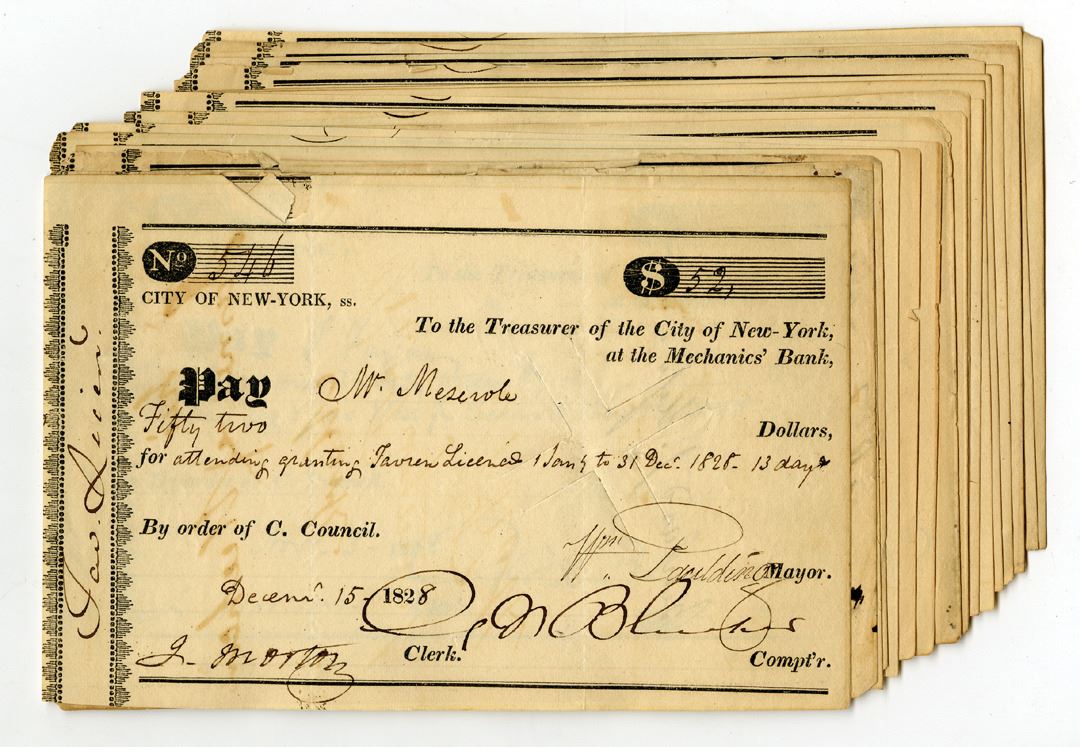 No 546 $ 52,
CITY OF NEW-YORK, ss.
To the Treasurer of the City of New-York,
at the Mechanics' Bank,
Pay Mr. Meserole
Fifty two Dollars,
for attending granting Tavren Licence 1 Jany to 31 Decr. 1828 - 13 days
By order of C. Council.
Wm. Paulding Mayor.
Decemr. 15 - 1828
J. Morton Clerk. Compt'r.